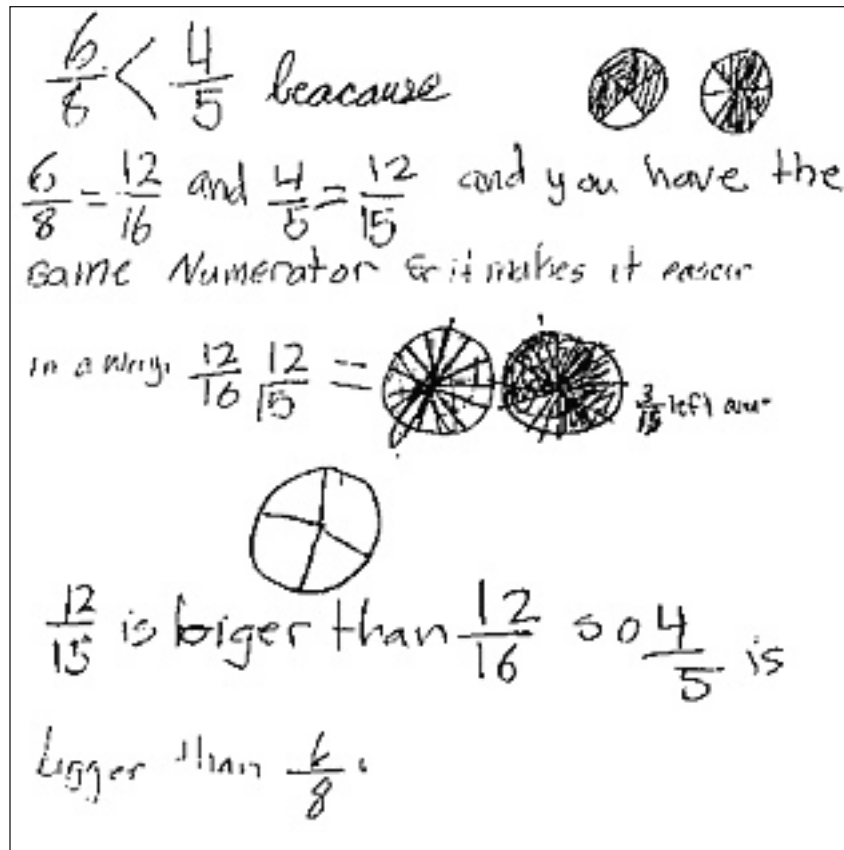 6/8 < 4/5 beacause
6/8 = 12/16 and 4/5 = 12/15 and you have the
same Numerator & it makes it easier
in a way. 12/16 12/15 =
3/15 left
12/15 is biger than 12/16 so 4/5 is
bigger than 6/8.